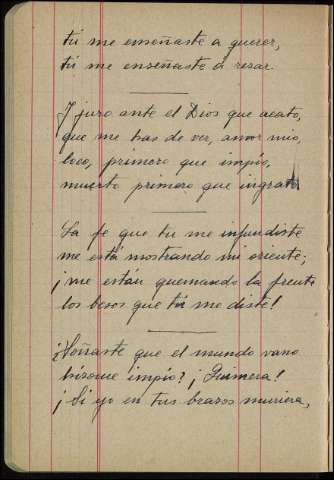 tú me enseñaste a querer,
tú me enseñaste á rezar.
Y juro ante el Dios que acato,
que me has de ver, amor mío,
loco, primero que impío,
muerto primero que ingrato
La fe que tu me infundiste
me está mostrando mi oriente;
¡me están quemando la frente
los besos que tú me diste!
¿Soñaste que el mundo vano
hízome impío? ¡Quimera!
¡Si yo en tus brazos muriera,